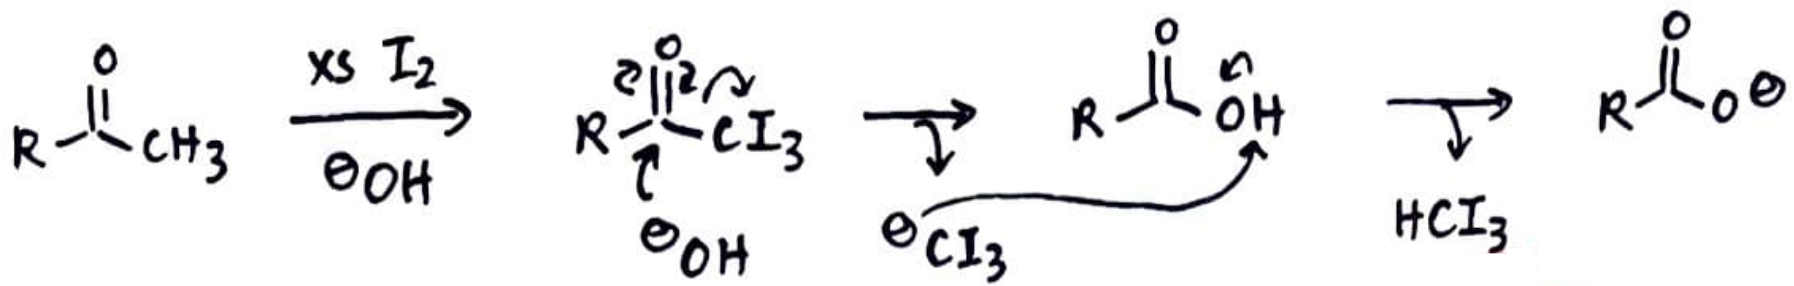 O
R CH3
xs I2
⊖OH
O
R CI3
⊖OH
⊖CI3
O
R OH
HCI3
O
R O⊖